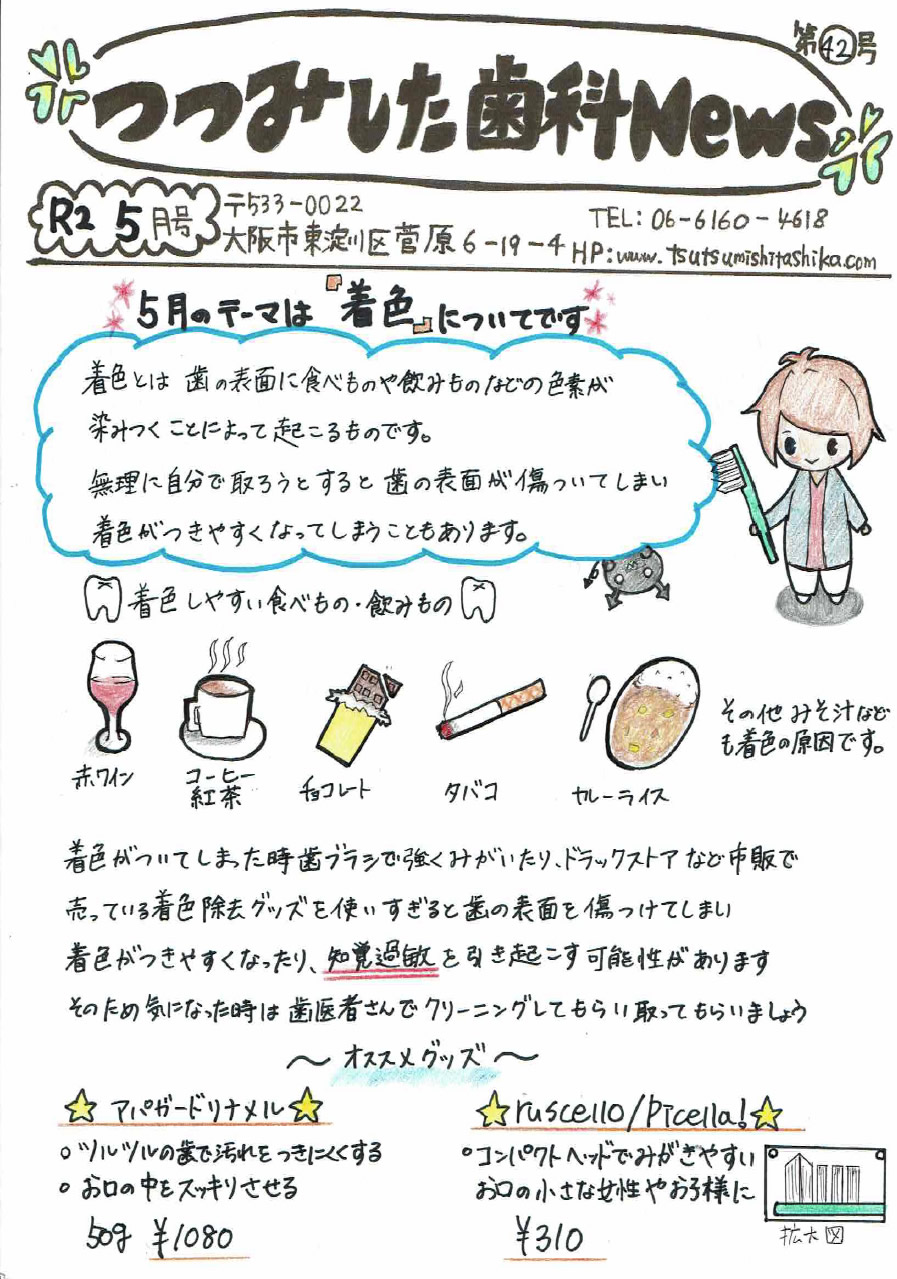 第42号
つつみした歯科News
R2 5月号
〒533-0022
大阪市東淀川区菅原6-19-4
TEL: 06-6160-4618
HP:www.tsutsumishitashika.com
5月のテーマは『着色』についてです
着色とは 歯の表面に食べものや飲みものなどの色素が
染みつくことによって起こるものです。
無理に自分で取ろうとすると歯の表面が傷ついてしまい
着色がつきやすくなってしまうこともあります。
着色しやすい食べもの・飲みもの
赤ワイン
コーヒー
紅茶
チョコレート
タバコ
カレーライス
その他 みそ汁など
も着色の原因です。
着色がついてしまった時歯ブラシで強くみがいたり、ドラックストアなど市販で
売っている着色除去グッズを使いすぎると歯の表面を傷つけてしまい
着色がつきやすくなったり、知覚過敏を引き起こす可能性があります
そのため気になった時は歯医者さんでクリーニングしてもらい取ってもらいましょう
〜オススメグッズ〜
☆アパガードリナメル☆
○ツルツルの歯で汚れをつきにくくする
○お口の中をスッキリさせる
50g ¥1080
☆ruscello/Picella!☆
○コンパクトヘッドでみがきやすい
お口の小さな女性やお子様に
¥310
拡大図